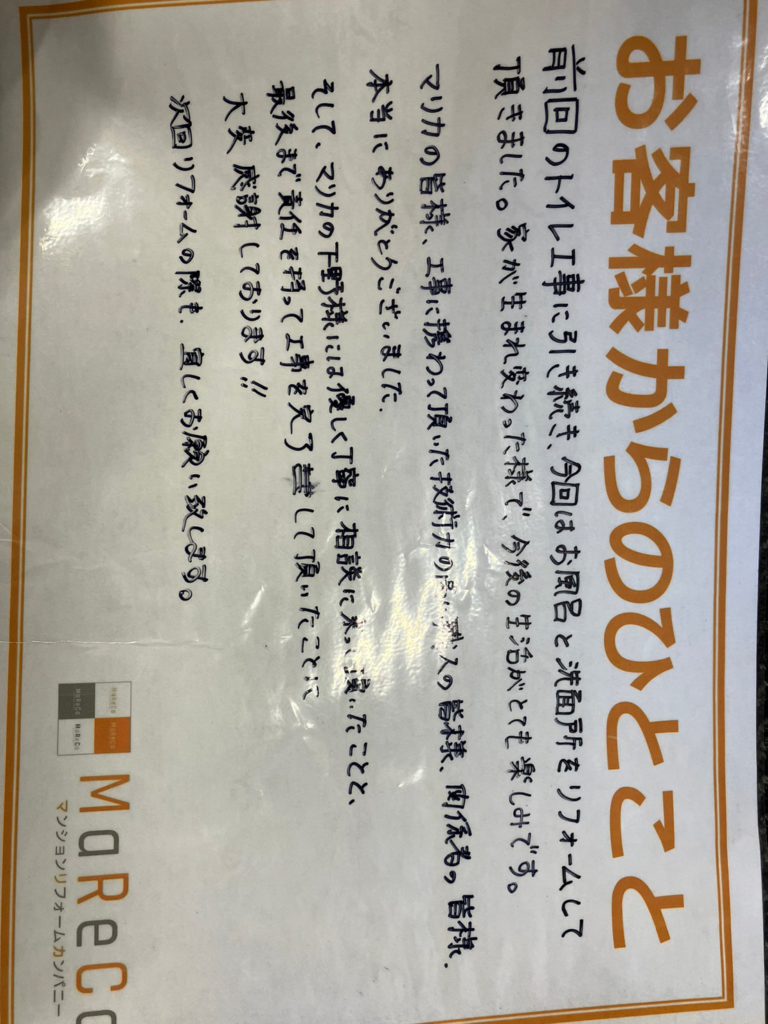 お客様からのひとこと
前回のトイレ工事に引き続き、今回はお風呂と洗面所をリフォームして
頂きました。家が生まれ変わった様で、今後の生活がとても楽しみです。
マリカの皆様、工事に携わって頂いた技術力の高い職人の皆様、関係者の皆様、
本当にありがとうございました.
そして、マリカの下野様には優しく丁寧に相談に来て頂いたことと、
最後まで責任を持って工事を完了して頂いたことに
大変感謝しております!!
次回リフォームの際も、宜しくお願い致します。
MaReCo
MaReCo
MaReCo
MaReCo
MaReCo
マンションリフォームカンパニー